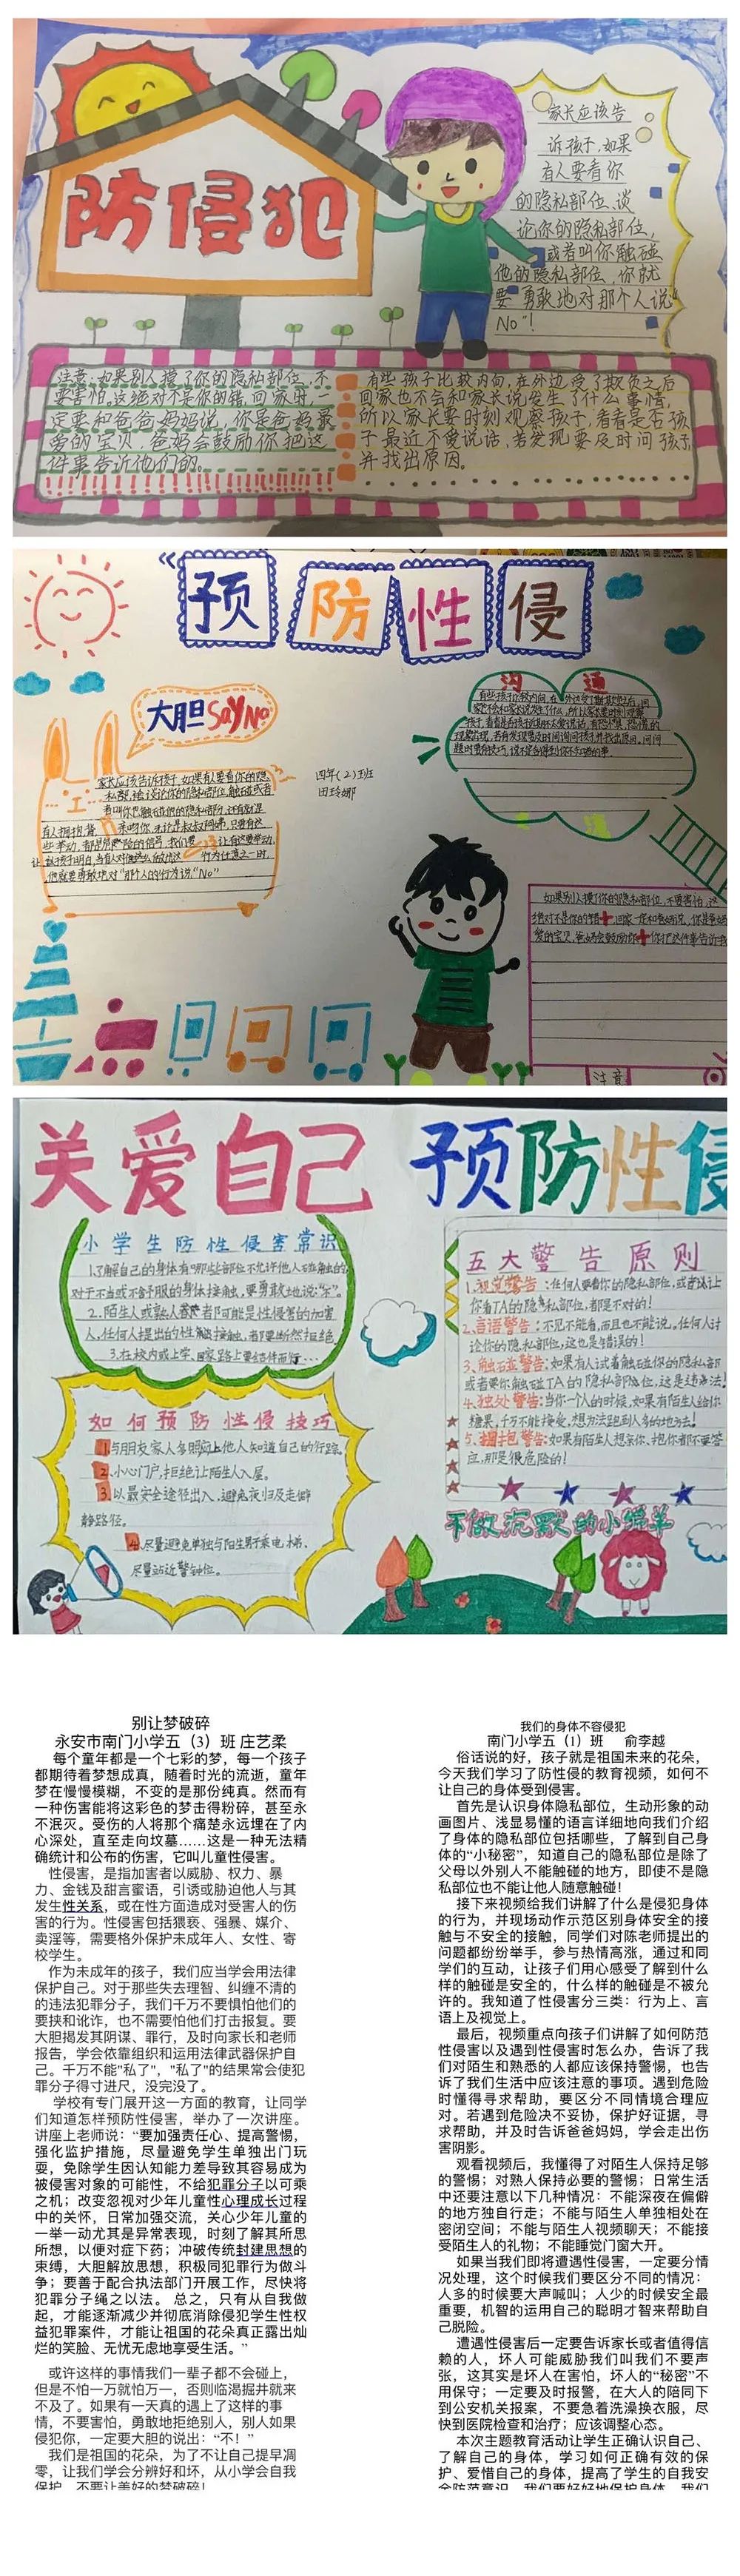 防侵犯
家长应该告
诉孩子,如果
有人要看你
的隐私部位、谈
论你的隐私部位,
或者叫你触碰
他的隐私部位,你就
要勇敢地对那个人说“
No”!
注意:如果别人摸了你的隐私部位,不
要害怕。这绝对不是你的错,回家时,一
定要和爸爸妈妈说,你是爸妈最
爱的宝贝,爸妈会鼓励你把这
件事告诉他们的。
有些孩子比较内向,在外边受了欺负之后
回家也不会和家长说发生了什么事情,
所以家长要时刻观察孩子,看看是否孩
子最近不爱说话,若发现要及时问孩子,
并找出原因。
预防性侵
大胆Say No
沟通
四年(2)班
家长应该告诉孩子,如果有人要看你的隐
他就要勇敢地对“那个人的行为说“No”
如果别人摸了你的隐私部位,不要害怕,这
注意
关爱自己 预防性侵
小学生防性侵害常识
1.了解自己的身体有哪些部位不允许他人碰触的,
对于不当或不舒服的身体接触,要勇敢地说:“不”。
2.陌生人或熟人都可能是性侵害的加害
人,任何人提出的性接触,都要断然拒绝
3.在校内或上学、回家路上要结伴而行...
如何预防性侵技巧
1.与朋友家人多明向上他人知道自己的行踪。
2.小心门户,拒绝让陌生人入屋。
3.以最安全途径出入,避免夜归及走僻
静路径。
4.尽量避免单独与陌生男子乘电梯,
尽量站近警钟位。
五大警告原则
1.视觉警告:任何人要看你的隐私部位,或者让
你看TA的隐私部位,都是不对的!
2.言语警告:不见不能看,而且也不能说。任何人讨
论你的隐私部位,这也是错误的!
3.触碰警告:如果有人试着触碰你的隐私部
或者要你触碰TA的隐私部位,这是违法!
4.独处警告:当你一个人的时候,如果有陌生人给你
糖果,千万不能接受,想办法跑到人多的地方去!
5.拥抱警告:如果有陌生人想亲你、抱你都不要答
应,那是很危险的!
不做沉默的小绵羊
别让梦破碎
永安市南门小学五（3）班 庄艺柔
每个童年都是一个七彩的梦，每一个孩子
都期待着梦想成真，随着时光的流逝，童年
梦在慢慢模糊，不变的是那份纯真。然而有
一种伤害能将这彩色的梦击得粉碎，甚至永
不泯灭。受伤的人将那个痛楚永远埋在了内
心深处，直至走向坟墓……这是一种无法精
确统计和公布的伤害，它叫儿童性侵害。
性侵害，是指加害者以威胁、权力、暴
力、金钱及甜言蜜语，引诱或胁迫他人与其
发生性关系，或在性方面造成对受害人的伤
害的行为。性侵害包括猥亵、强暴、媒介、
卖淫等，需要格外保护未成年人、女性、寄
校学生。
作为未成年的孩子，我们应当学会用法律
保护自己。对于那些失去理智、纠缠不清的
的违法犯罪分子，我们千万不要惧怕他们的
要挟和讹诈，也不需要怕他们打击报复。要
大胆揭发其阴谋、罪行，及时向家长和老师
报告，学会依靠组织和运用法律武器保护自
己。千万不能"私了"，"私了"的结果常会使犯
罪分子得寸进尺，没完没了。
学校有专门展开这一方面的教育，让同学
们知道怎样预防性侵害，举办了一次讲座。
讲座上老师说：“要加强责任心、提高警惕，
强化监护措施，尽量避免学生单独出门玩
耍，免除学生因认知能力差导致其容易成为
被侵害对象的可能性，不给犯罪分子以可乘
之机；改变忽视对少年儿童性心理成长过程
中的关怀，日常加强交流，关心少年儿童的
一举一动尤其是异常表现，时刻了解其所思
所想，以便对症下药；冲破传统封建思想的
束缚，大胆解放思想，积极同犯罪行为做斗
争；要善于配合执法部门开展工作，尽快将
犯罪分子绳之以法。 总之，只有从自我做
起，才能逐渐减少并彻底消除侵犯学生性权
益犯罪案件，才能让祖国的花朵真正露出灿
烂的笑脸、无忧无虑地享受生活。”
或许这样的事情我们一辈子都不会碰上，
但是不怕一万就怕万一，否则临渴掘井就来
不及了。如果有一天真的遇上了这样的事
情，不要害怕，勇敢地拒绝别人，别人如果
侵犯你，一定要大胆的说出：“不！”
我们是祖国的花朵，为了不让自己提早凋
零，让我们学会分辨好和坏，从小学会自我
保护，不要让美好的梦破碎！
我们的身体不容侵犯
南门小学五（1）班 俞李越
俗话说的好，孩子就是祖国未来的花朵，
今天我们学习了防性侵的教育视频，如何不
让自己的身体受到侵害。
首先是认识身体隐私部位，生动形象的动
画图片、浅显易懂的语言详细地向我们介绍
了身体的隐私部位包括哪些，了解到自己身
体的“小秘密”，知道自己的隐私部位是除了
父母以外别人不能触碰的地方，即使不是隐
私部位也不能让他人随意触碰！
接下来视频给我们讲解了什么是侵犯身体
的行为，并现场动作示范区别身体安全的接
触与不安全的接触，同学们对陈老师提出的
问题都纷纷举手，参与热情高涨，通过和同
学们的互动，让孩子们用心感受了解到什么
样的触碰是安全的，什么样的触碰是不被允
许的。我知道了性侵害分三类：行为上、言
语上及视觉上。
最后，视频重点向孩子们讲解了如何防范
性侵害以及遇到性侵害时怎么办，告诉了我
们对陌生和熟悉的人都应该保持警惕，也告
诉了我们生活中应该注意的事项。遇到危险
时懂得寻求帮助，要区分不同情境合理应
对。若遇到危险决不妥协，保护好证据，寻
求帮助，并及时告诉爸爸妈妈，学会走出伤
害阴影。
观看视频后，我懂得了对陌生人保持足够
的警惕；对熟人保持必要的警惕；日常生活
中还要注意以下几种情况：不能深夜在偏僻
的地方独自行走；不能与陌生人单独相处在
密闭空间；不能与陌生人视频聊天；不能接
受陌生人的礼物；不能睡觉门窗大开。
如果当我们即将遭遇性侵害，一定要分情
况处理，这个时候我们要区分不同的情况：
人多的时候要大声喊叫；人少的时候安全最
重要，机智的运用自己的聪明才智来帮助自
己脱险。
遭遇性侵害后一定要告诉家长或者值得信
赖的人，坏人可能威胁我们叫我们不要声
张，这其实是坏人在害怕，坏人的“秘密”不
用保守；一定要及时报警，在大人的陪同下
到公安机关报案，不要急着洗澡换衣服，尽
快到医院检查和治疗；应该调整心态。
本次主题教育活动让学生正确认识自己、
了解自己的身体，学习如何正确有效的保
护、爱惜自己的身体，提高了学生的自我安
全防范意识。我们要好好地保护身体，我们